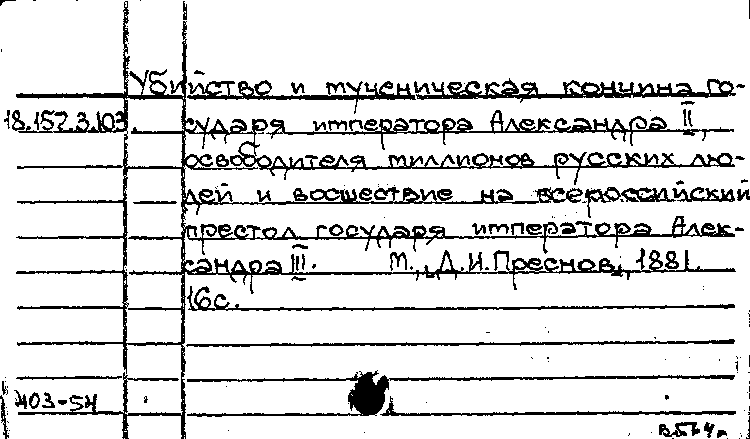 Убийство и мученическая кончина го-
18.152.3.103. сударя императора Александра II,
освободителя миллионов русских лю-
дей и восшествие на всероссийский
престол государя императора Алек-
сандра III. М., "Д.И. Преснов", 1881.
16с.
403-54